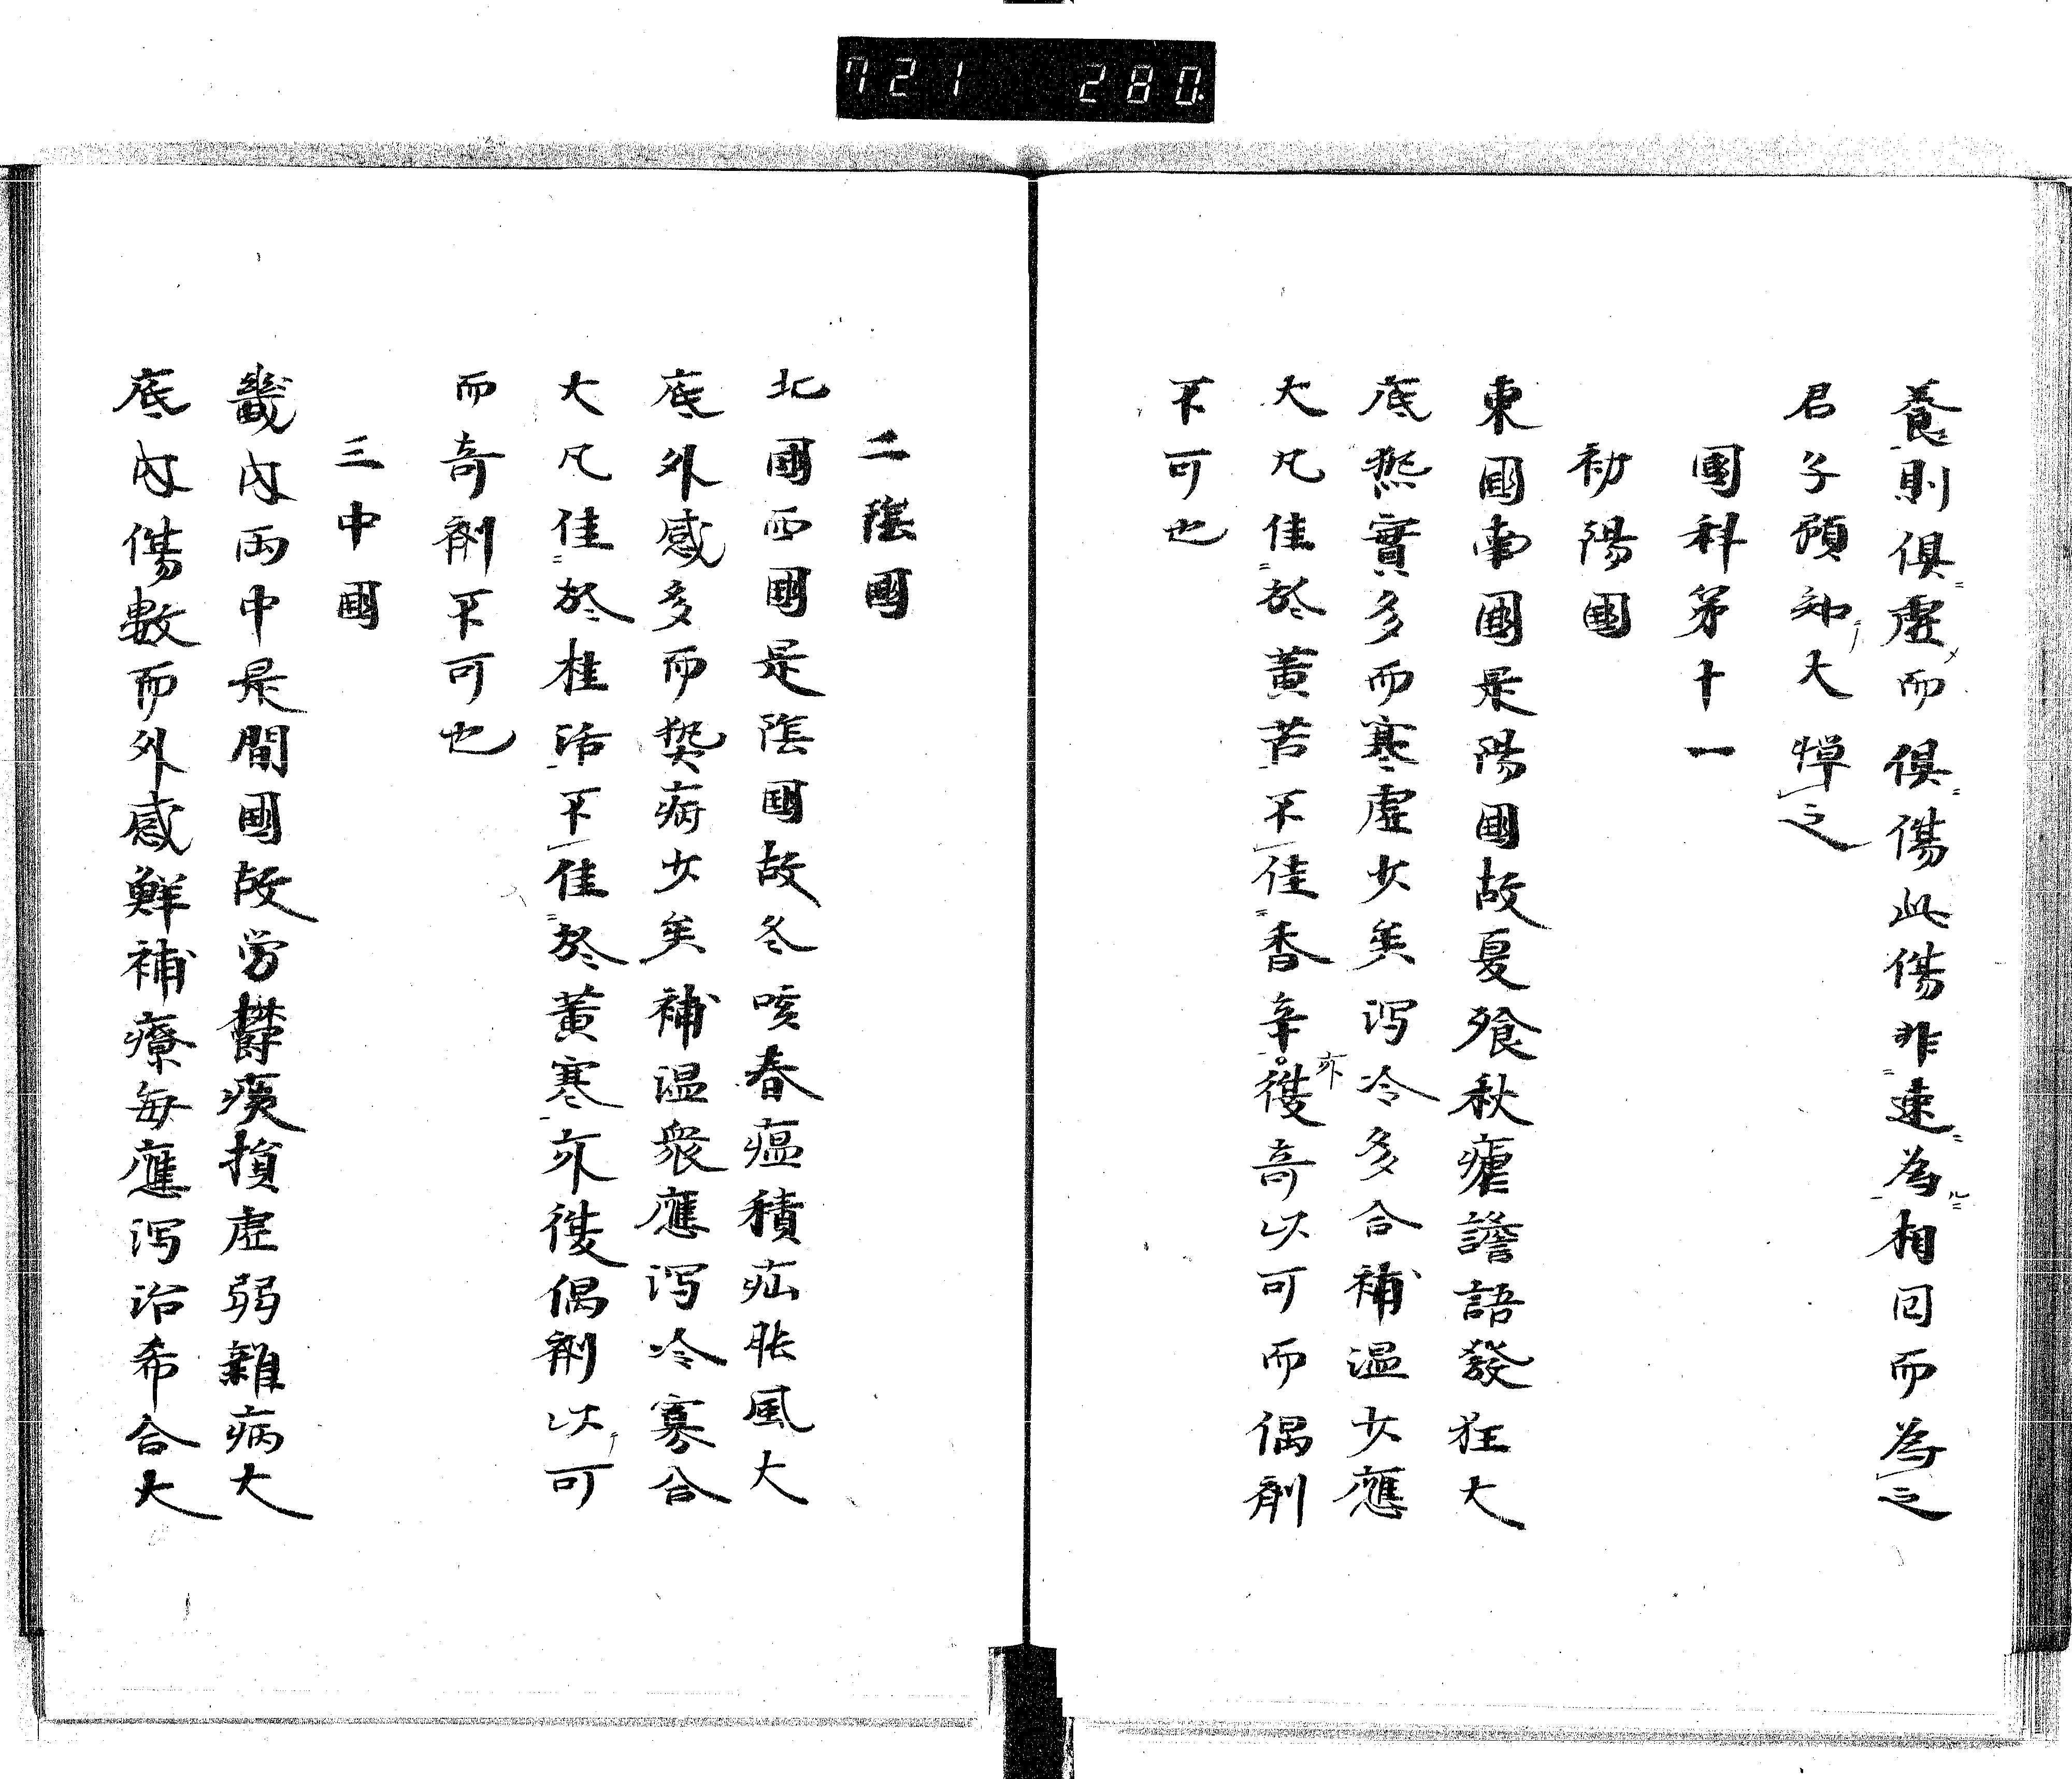 721 280
養則俱虛而俱傷此傷非速為相因而為之
君子預知大憚之
國科第十一
初陽國
東國南國是陽國故夏飱秋瘧譫語發狂大
底熱實多而寒虛少矣瀉冷多合補温少應
大凡佳於黄苦不佳香辛亦復奇以可而偶劑
不可也
二陰國
北國西國是陰國故冬咳春瘟積疝脹風大
底外感多而病少矣補温衆應瀉冷寡合
大凡佳於桂活不佳於黄寒亦復偶劑以可
而奇劑不可也
三中國
畿内両中是間國故労欝痰損虚弱雜病大
底内傷數而外感鮮補療毎應瀉治希合大